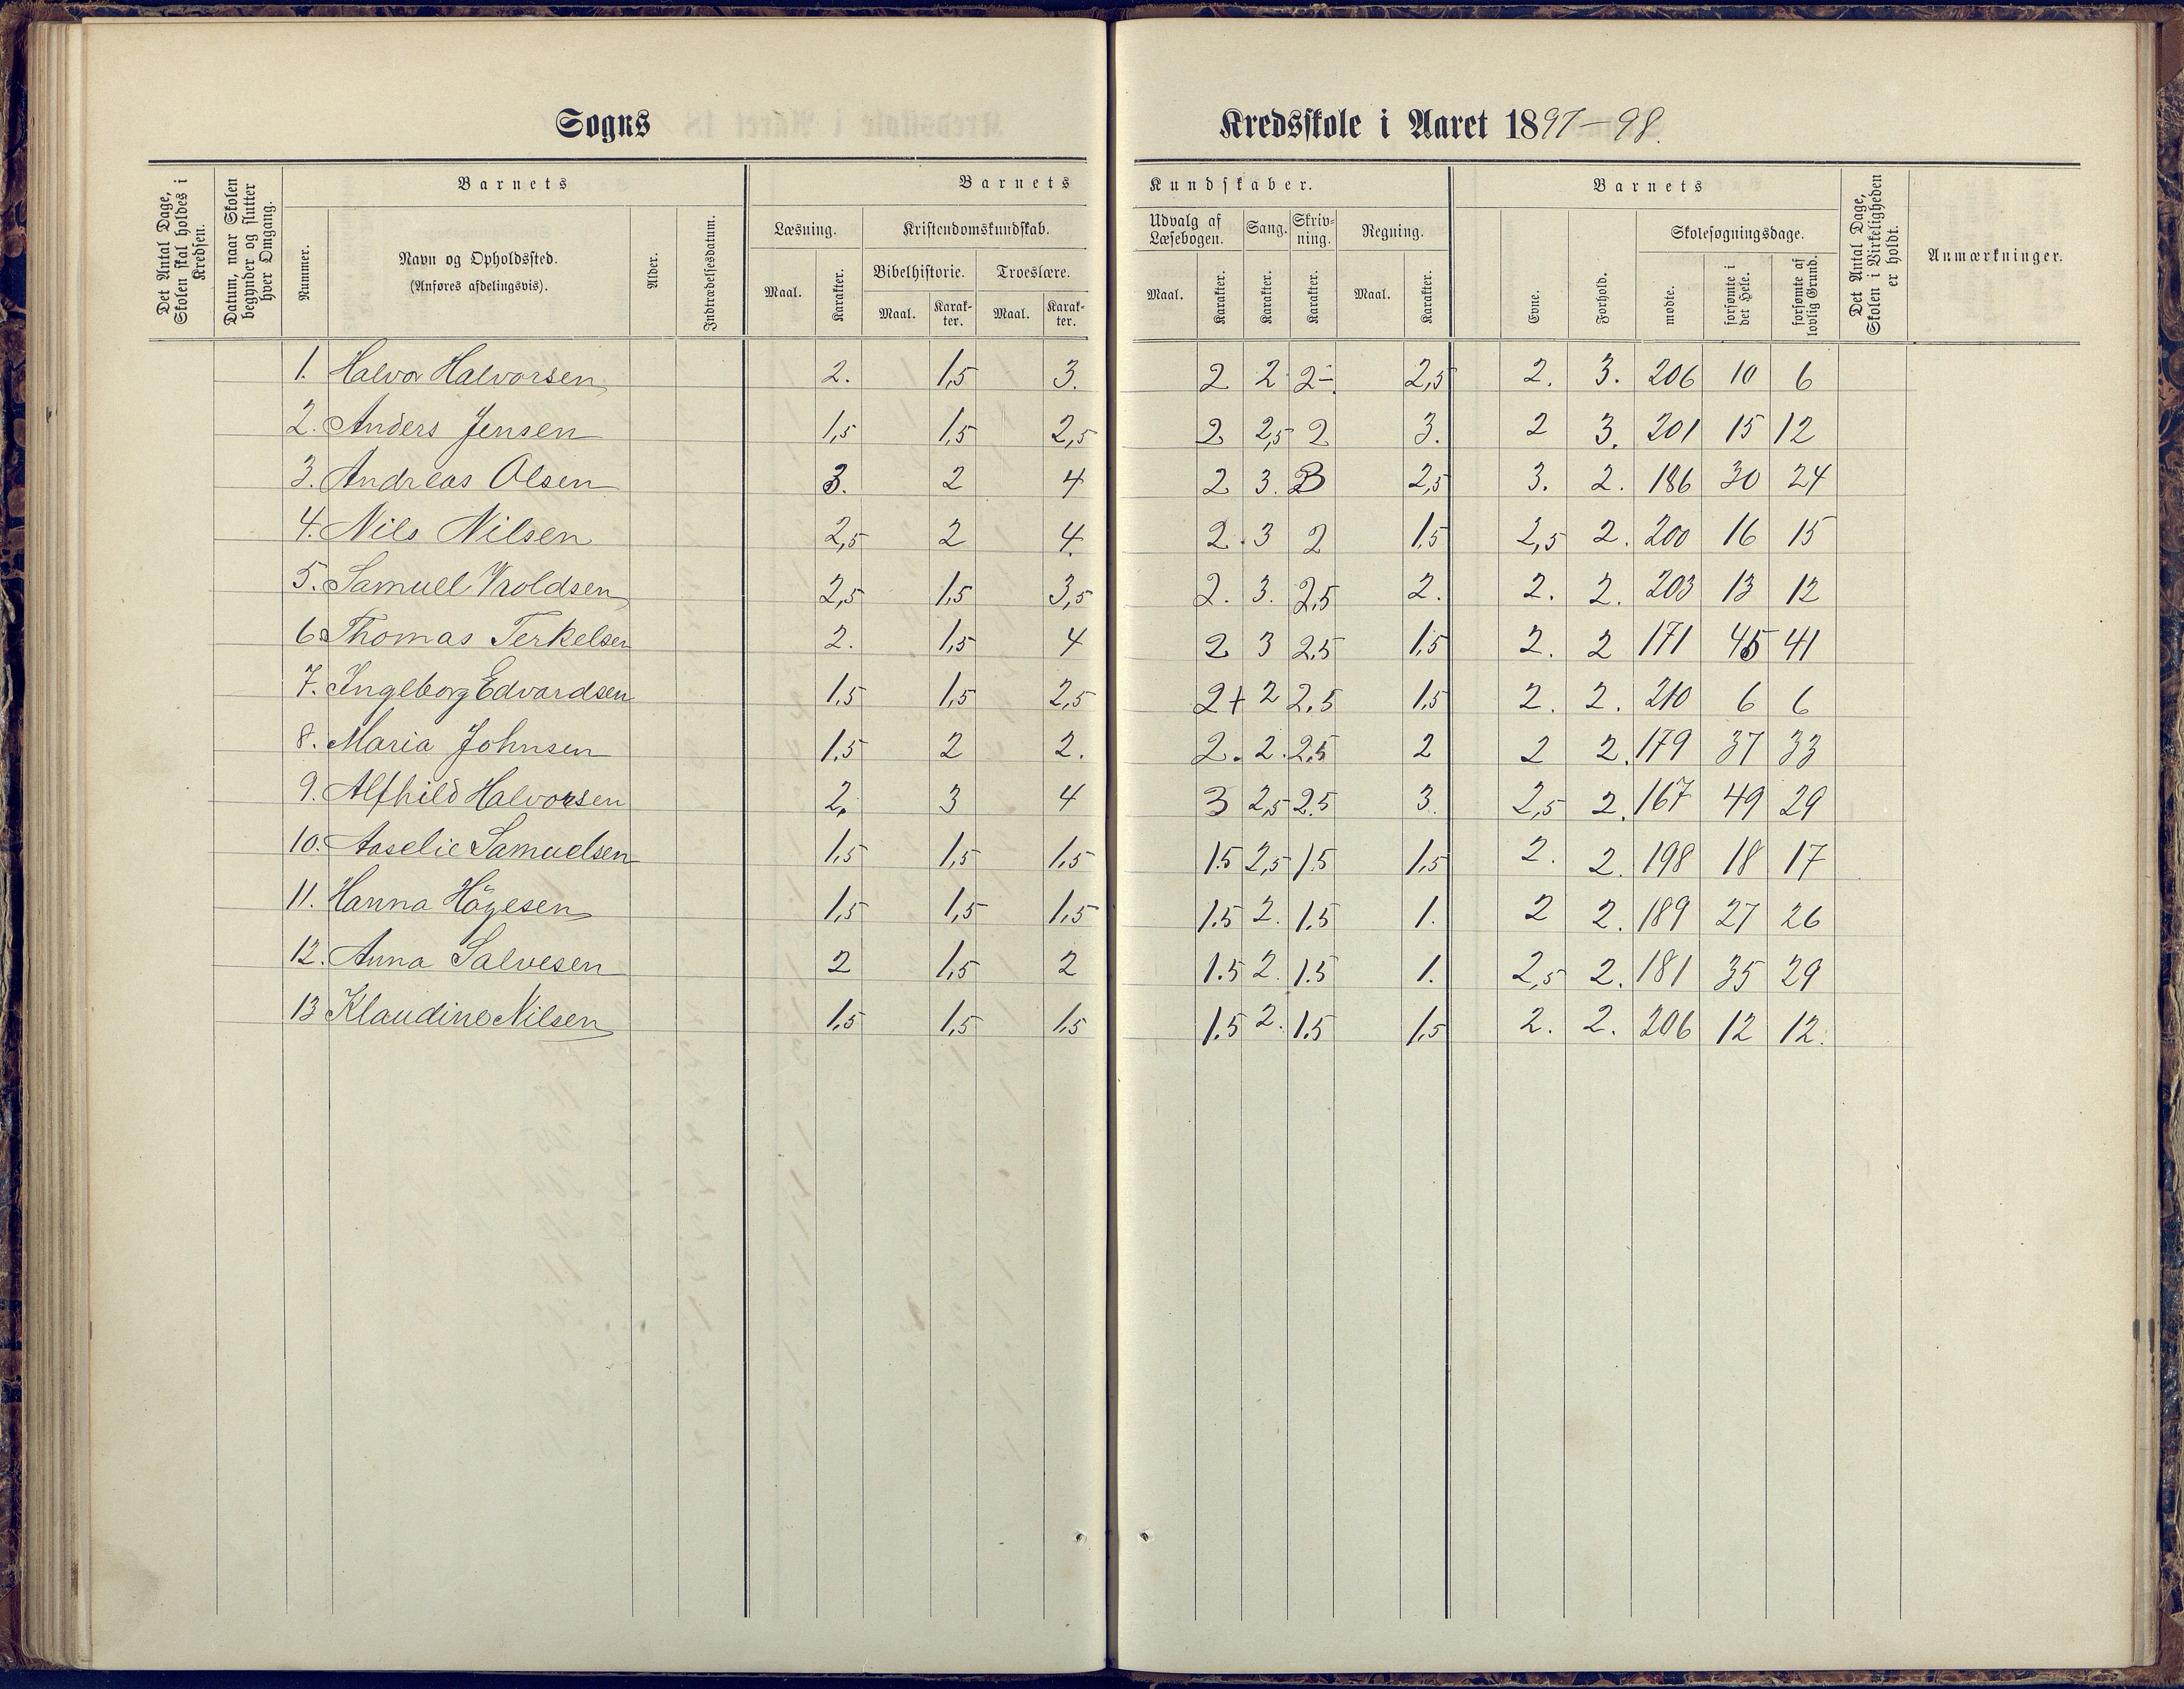 Sogns Kredsskole i Aaret 1897–98.
Det Antal Dage, Skolen skal holdes i Kredsen.
Datum, naar Skolen begynder og slutter hver Omgang.
Barnets
Nummer.
Navn og Opholdssted.
(Anføres afdelingsvis).
Alder.
Indtrædelsesdatum.
Barnets Kundskaber.
Læsning.
Maal. Karakter.
Kristendomskundskab.
Bibelhistorie. Troeslære.
Maal. Karak-ter. Maal. Karak-ter.
Udvalg af Læsebogen. Sang. Skriv-ning. Regning.
Maal. Karakter. Karakter. Karakter. Maal. Karakter.
Barnets
Evne. Forhold.
Skolesøgningsdage.
mødte. forsømte i det Hele. forsømte af lovlig Grund.
Det Antal Dage, Skolen i Virkeligheden er holdt.
Anmærkninger.
1. Halvor Halvorsen 2. 1,5 3. 2 2 2- 2,5 2. 3. 206 10 6
2. Anders Jensen 1,5 1,5 2,5 2 2,5 2 3. 2 3. 201 15 12
3. Andreas Olsen 3. 2 4 2 3. 2,5 3. 2. 186 30 24
4. Nils Nilsen 2,5 2 4. 2. 3 2 1,5 2,5 2. 200 16 15
5. Samuel Vroldsen 2,5 1,5 3,5 2. 3. 2,5 2. 2. 2. 203 13 12
6. Thomas Terkelsen 2. 1,5 4 2 3 2,5 1,5 2. 2 171 45 41
7. Ingeborg Edvardsen 1,5 1,5 2,5 2+ 2 2,5 1,5 2. 2. 210 6 6
8. Maria Johnsen 1,5 2 2. 2. 2. 2,5 2 2 2. 179 37 33
9. Alfhild Halvorsen 2. 3 4 3 2,5 2,5 3. 2,5 2. 167 49 29
10. Aaselie Samuelsen 1,5 1,5 1,5 1.5 2,5 1.5 1,5 2. 2. 198 18 17
11. Hanna Högesen 1,5 1,5 1,5 1.5 2. 1.5 1. 2 2. 189 27 26
12. Anna Salvesen 2 1,5 2 1.5 2. 1.5 1. 2,5 2. 181 35 29
13 Klaudine Nilsen 1,5 1,5 1,5 1.5 2. 1.5 1,5 2. 2. 206 12 12.